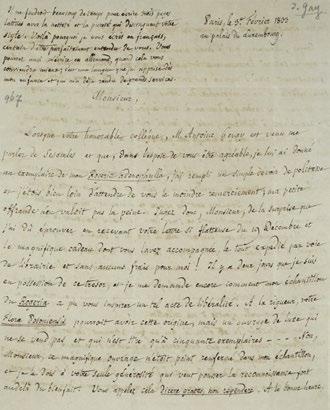 J. Gay
Il me faudroit beaucoup de temps pour écrire trois pages
latines avec la netteté et la pureté qui distinguent votre
style. Voilà pourquoi je vous écris en français,
certain d'être parfaitement entendu de vous. Vous
pouvez me récrire en allemand, quand cela vous
conviendra mieux; c'est une langue que je
et qui m'a déja rendu de grands services.
Paris, le 5 février 1833
au palais du Luxembourg.
967
Monsieur,
Lorsque votre honorable collègue, M. Antoine est venu me
parler de et que, dans l'espoir de vous être agréable, je lui ai donné
un exemplaire de mon j'ai rempli un simple devoir de politesse
et j'étois bien loin d'attendre de vous le moindre remerciement, ma petite
offrande n'en valoit pas la peine. Jugez donc, Monsieur, de la surprise que
j'ai dû éprouver en recevant votre lettre si flatteuse du 19 Décembre et
le magnifique cadeau dont vous l'avez accompagnée, le tout expédié par voie
de librairie et sans aucuns frais pour moi! Il y a donc jours que je suis
en possession de ce trésor, et je me demande encore comment mon échantillon
du a pu vous inspirer un tel acte de libéralité. A la rigueur, votre
Flora Posoniensis pourroit avoir cette origine, mais un ouvrage de luxe qui
ne se vend pas et qui n'est tiré qu'à cinquante exemplaires — Non,
Monsieur, ce magnifique ouvrage n'étoit point renfermé dans mon échantillon;
et je le dois à votre seule générosité qui veut pousser la reconnoissance fort
audelà du bienfait. Vous appelez cela dicere grates, non rependere. A la bonne heure,